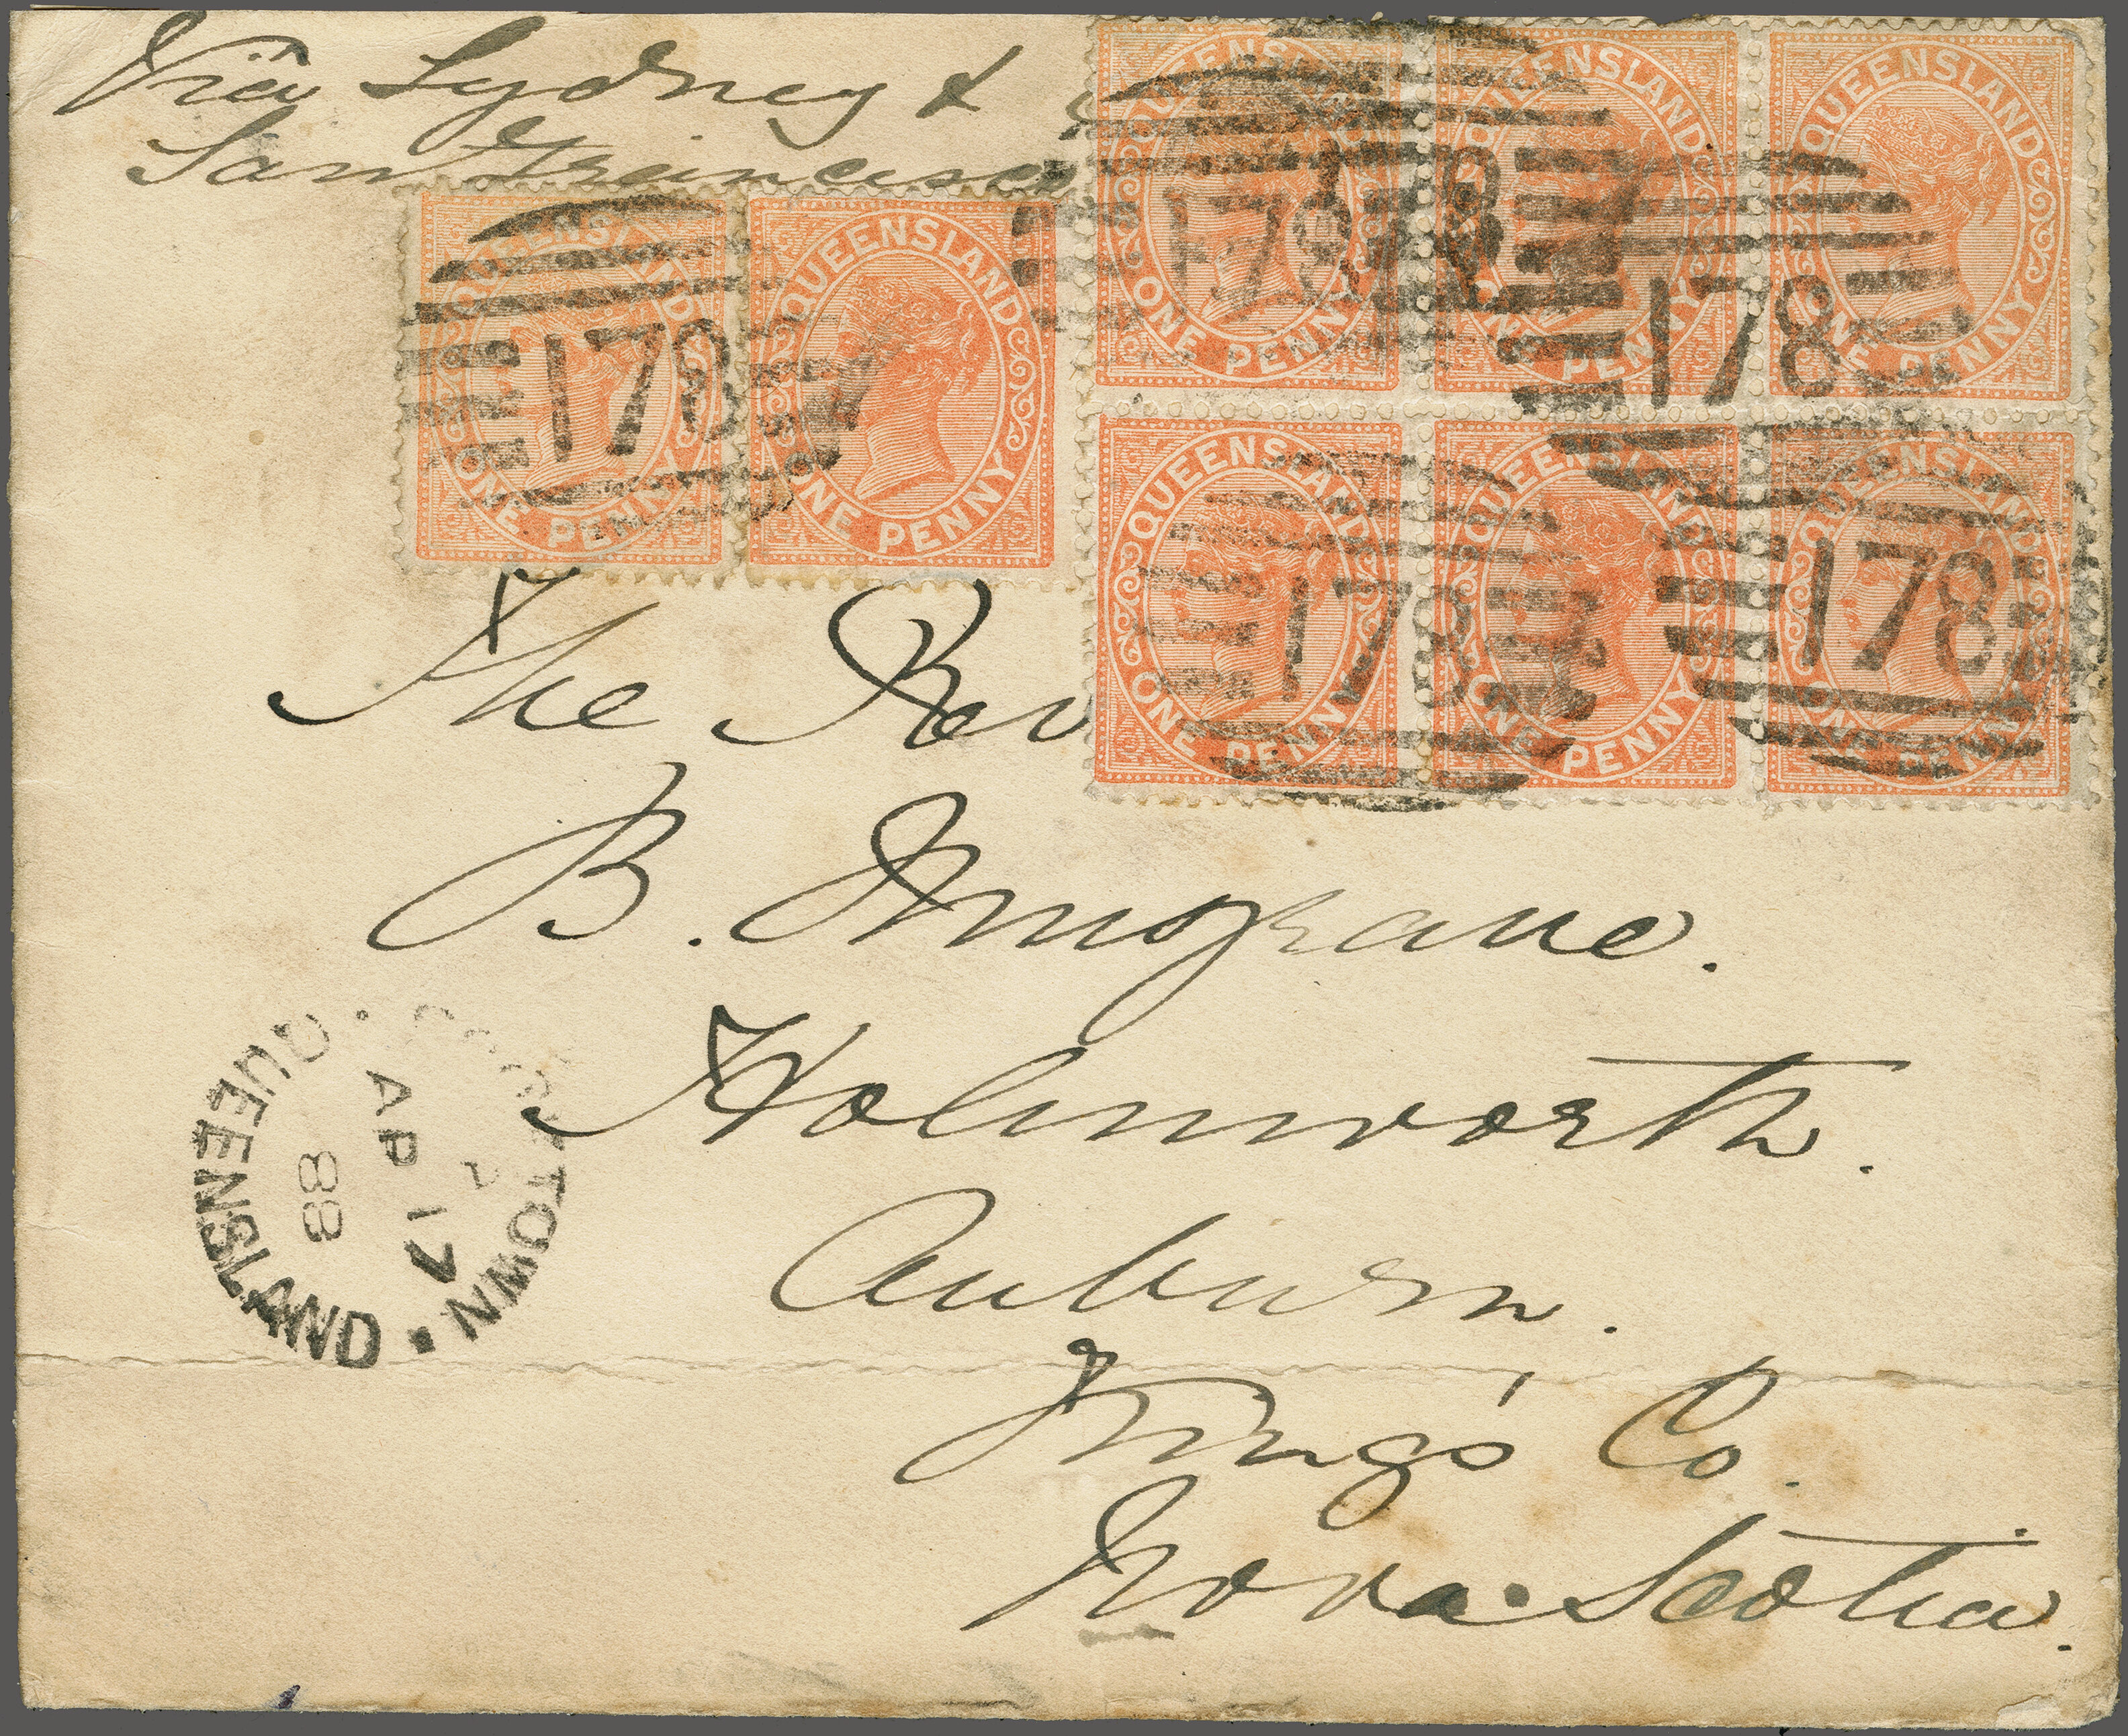 Via Sydney &
San Francisco
QUEENSLAND
ONE PENNY
QUEENSLAND
ONE PENNY
QUEENSLAND
ONE PENNY
QUEENSLAND
ONE PENNY
QUEENSLAND
ONE PENNY
QUEENSLAND
ONE PENNY
QUEENSLAND
ONE PENNY
QUEENSLAND
ONE PENNY
178
178
178
178
178
The Rev
B.
Holmworth.
Auburn.
King's Co.
Nova Scotia.
QUEENSLAND
TOWN
AP 17
88